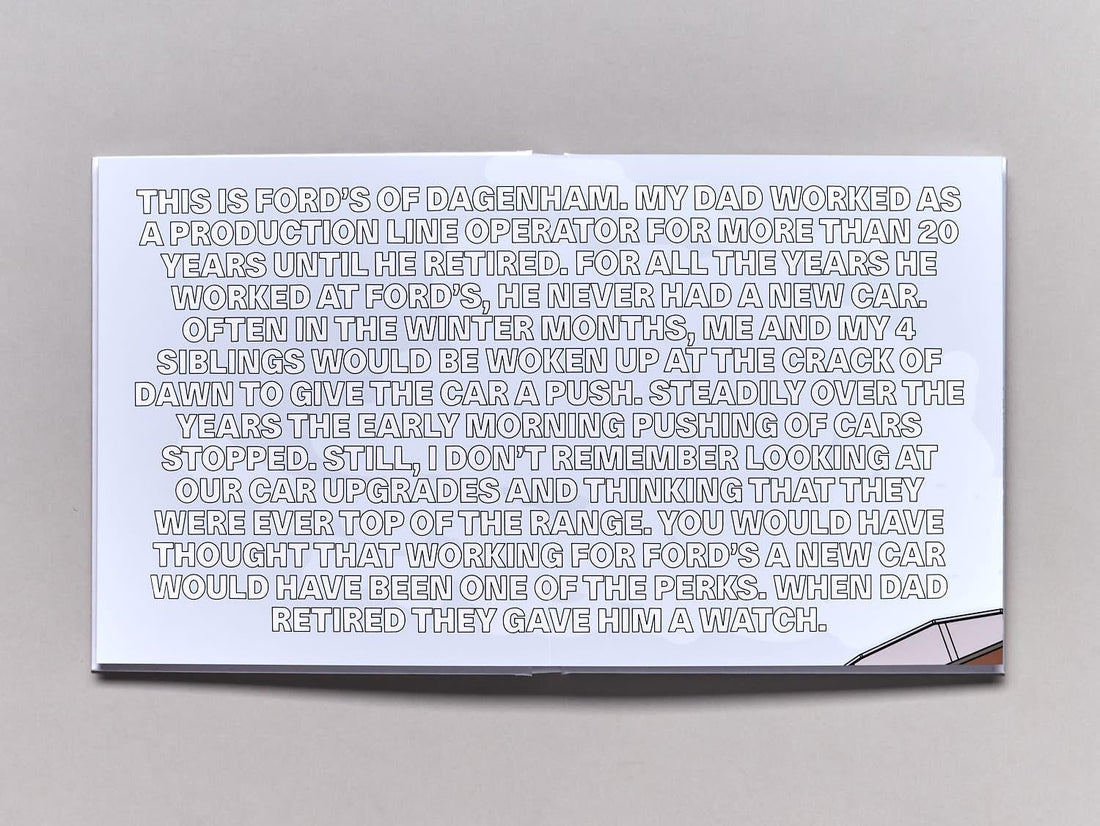 THIS IS FORD'S OF DAGENHAM. MY DAD WORKED AS
A PRODUCTION LINE OPERATOR FOR MORE THAN 20
YEARS UNTIL HE RETIRED. FOR ALL THE YEARS HE
WORKED AT FORD'S, HE NEVER HAD A NEW CAR.
OFTEN IN THE WINTER MONTHS, ME AND MY 4
SIBLINGS WOULD BE WOKEN UP AT THE CRACK OF
DAWN TO GIVE THE CAR A PUSH. STEADILY OVER THE
YEARS THE EARLY MORNING PUSHING OF CARS
STOPPED. STILL, I DON'T REMEMBER LOOKING AT
OUR CAR UPGRADES AND THINKING THAT THEY
WERE EVER TOP OF THE RANGE. YOU WOULD HAVE
THOUGHT THAT WORKING FOR FORD'S A NEW CAR
WOULD HAVE BEEN ONE OF THE PERKS. WHEN DAD
RETIRED THEY GAVE HIM A WATCH.